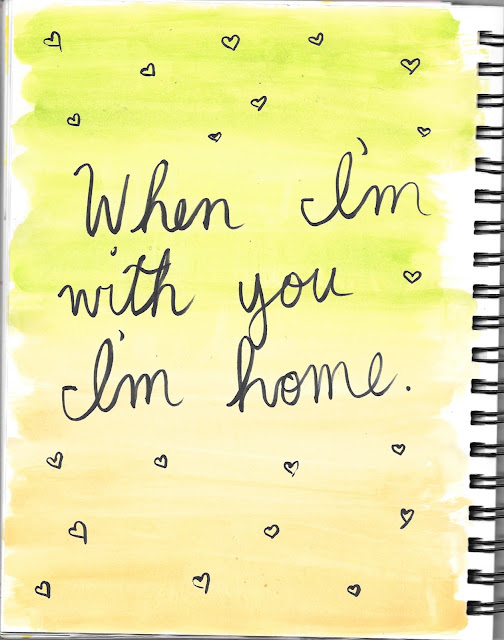 When I'm
with you
I'm home.